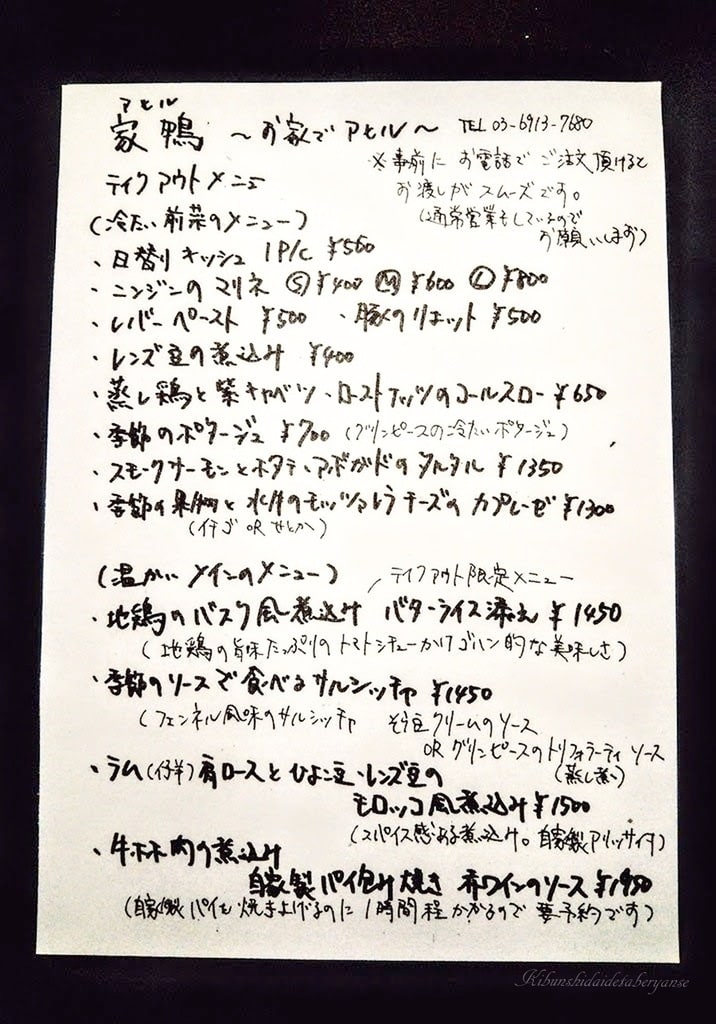 アヒル
家鴨 〜お家でアヒル〜 TEL 03-6913-7680
※事前にお電話でご注文頂けると
お渡しがスムーズです。
(通常営業もしているので
お願いします)
テイクアウトメニュー
(冷たい前菜のメニュー)
・日替りキッシュ 1P/c ¥500
・ニンジンのマリネ Ⓢ¥400 Ⓜ¥600 Ⓛ¥800
・レバーペースト ¥500 ・豚のリエット ¥500
・レンズ豆の煮込み ¥400
・蒸し鶏と紫キャベツ・ローストナッツのコールスロー ¥650
・季節のポタージュ ¥700 (グリンピースの冷たいポタージュ)
・スモークサーモンとホタテ・アボガドのタルタル ¥1350
・季節の果物と水牛のモッツァレラチーズのカプレーゼ ¥1300
(イチゴ OR せとか)
(温かいメインのメニュー) テイクアウト限定メニュー
・地鶏のバスク風煮込み バターライス添え ¥1450
(地鶏の旨味たっぷりのトマトシチューかけゴハン的な美味しさ)
・季節のソースで食べるサルシッチャ ¥1450
(フェンネル風味のサルシッチャ そら豆クリームのソース
OR グリンピースのトリフォラーティソース
(蒸し煮)
・ラム(仔羊)肩ロースとひよこ豆・レンズ豆の
モロッコ風煮込み ¥1500
(スパイス感ある煮込み。自家製アリッサ付)
・牛ホホ肉の煮込み
自家製パイ包み焼き 赤ワインのソース ¥1950
(自家製パイを焼き上げるのに1時間程かかるので要予約です)
Kibunshidaidetaberyanse